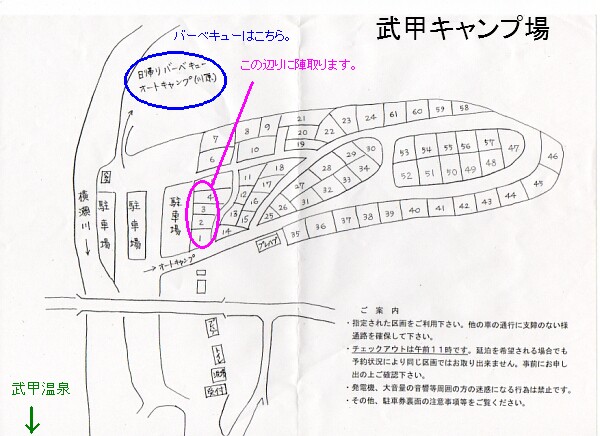 武甲キャンプ場
バーベキューはこちら。
この辺りに陣取ります。
日帰りバーベキュー
オートキャンプ(川原)
横瀬川
駐車場
駐車場
駐車場
→オートキャンプ
7 8 9 21 22 23 24 61 60 59 58
6 10 20 19
11 18 28 29 30
12 17 27 32 33 34
4 3 2 1
13 16 31
14 15 25 26
53 54 55 56 57
52 51 50 49 48 47
46
35 36 37 38 39 40 41 42 43 44 45
トイレ
受付
ご案内
・指定された区画をご利用下さい。他の車の通行に支障のない様
通路を確保して下さい。
・チェックアウトは午前11時です。延泊を希望される場合でも
予約状況により同じ区画ではお取り出来ません。事前にお申し
出の上ご確認下さい。
・発電機、大音量の音響等周囲の方の迷惑になる行為は禁止です。
・その他、駐車券裏面の注意事項等をご覧ください。
武甲温泉